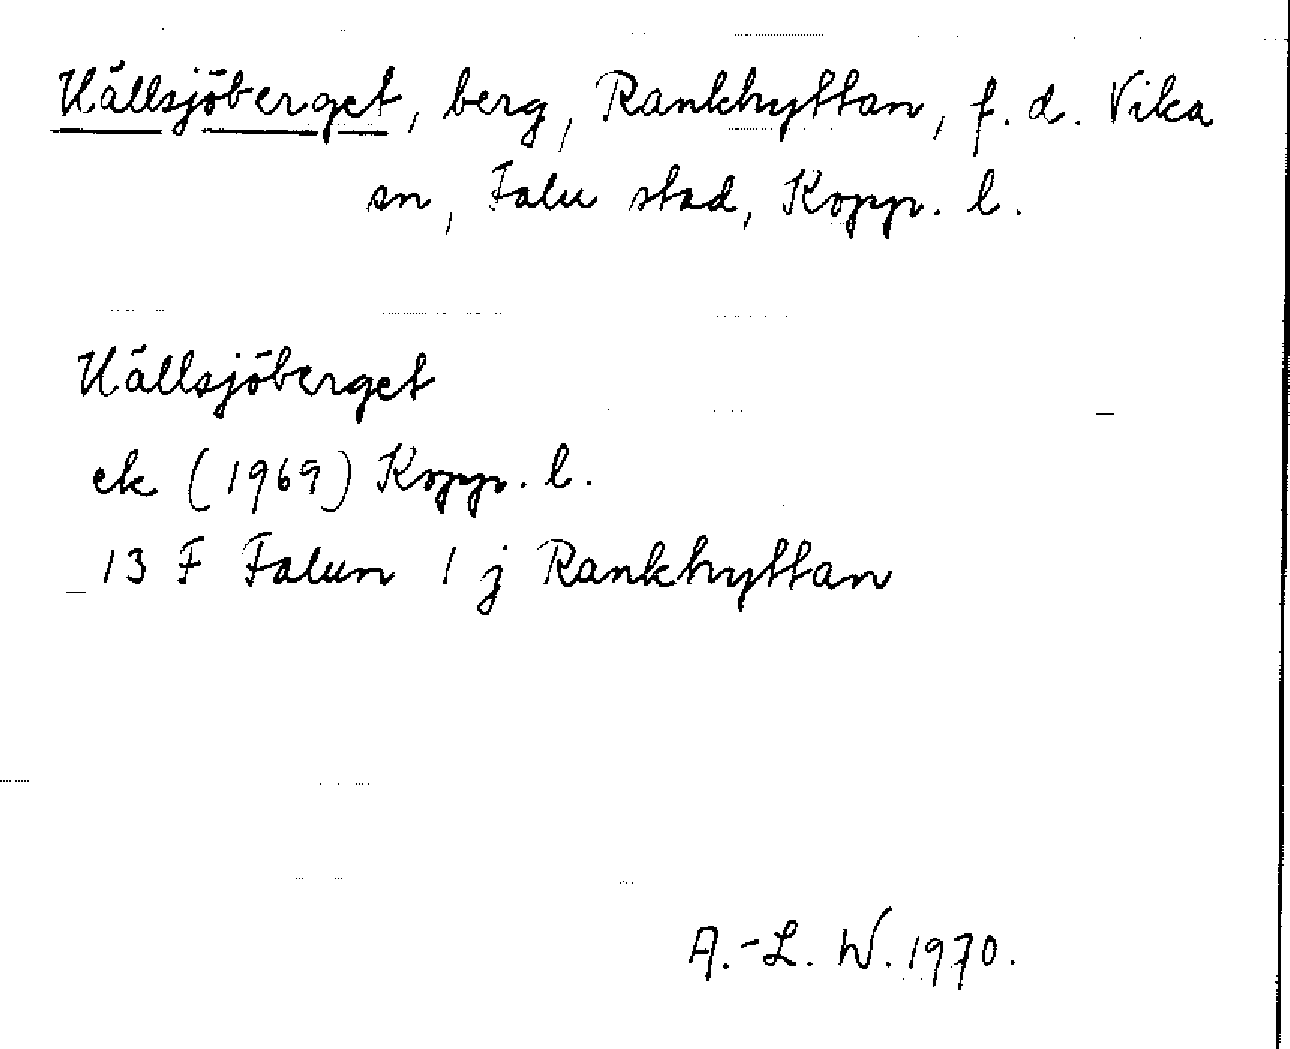 Hällsjöberget, berg, Rankhyttan, f. d. Vika
sn, Falu stad, Kopp. l.
Hällsjöberget
ek (1969) Kopp. l.
13 F Falun 1 j Rankhyttan
A.-L. W. 1970.